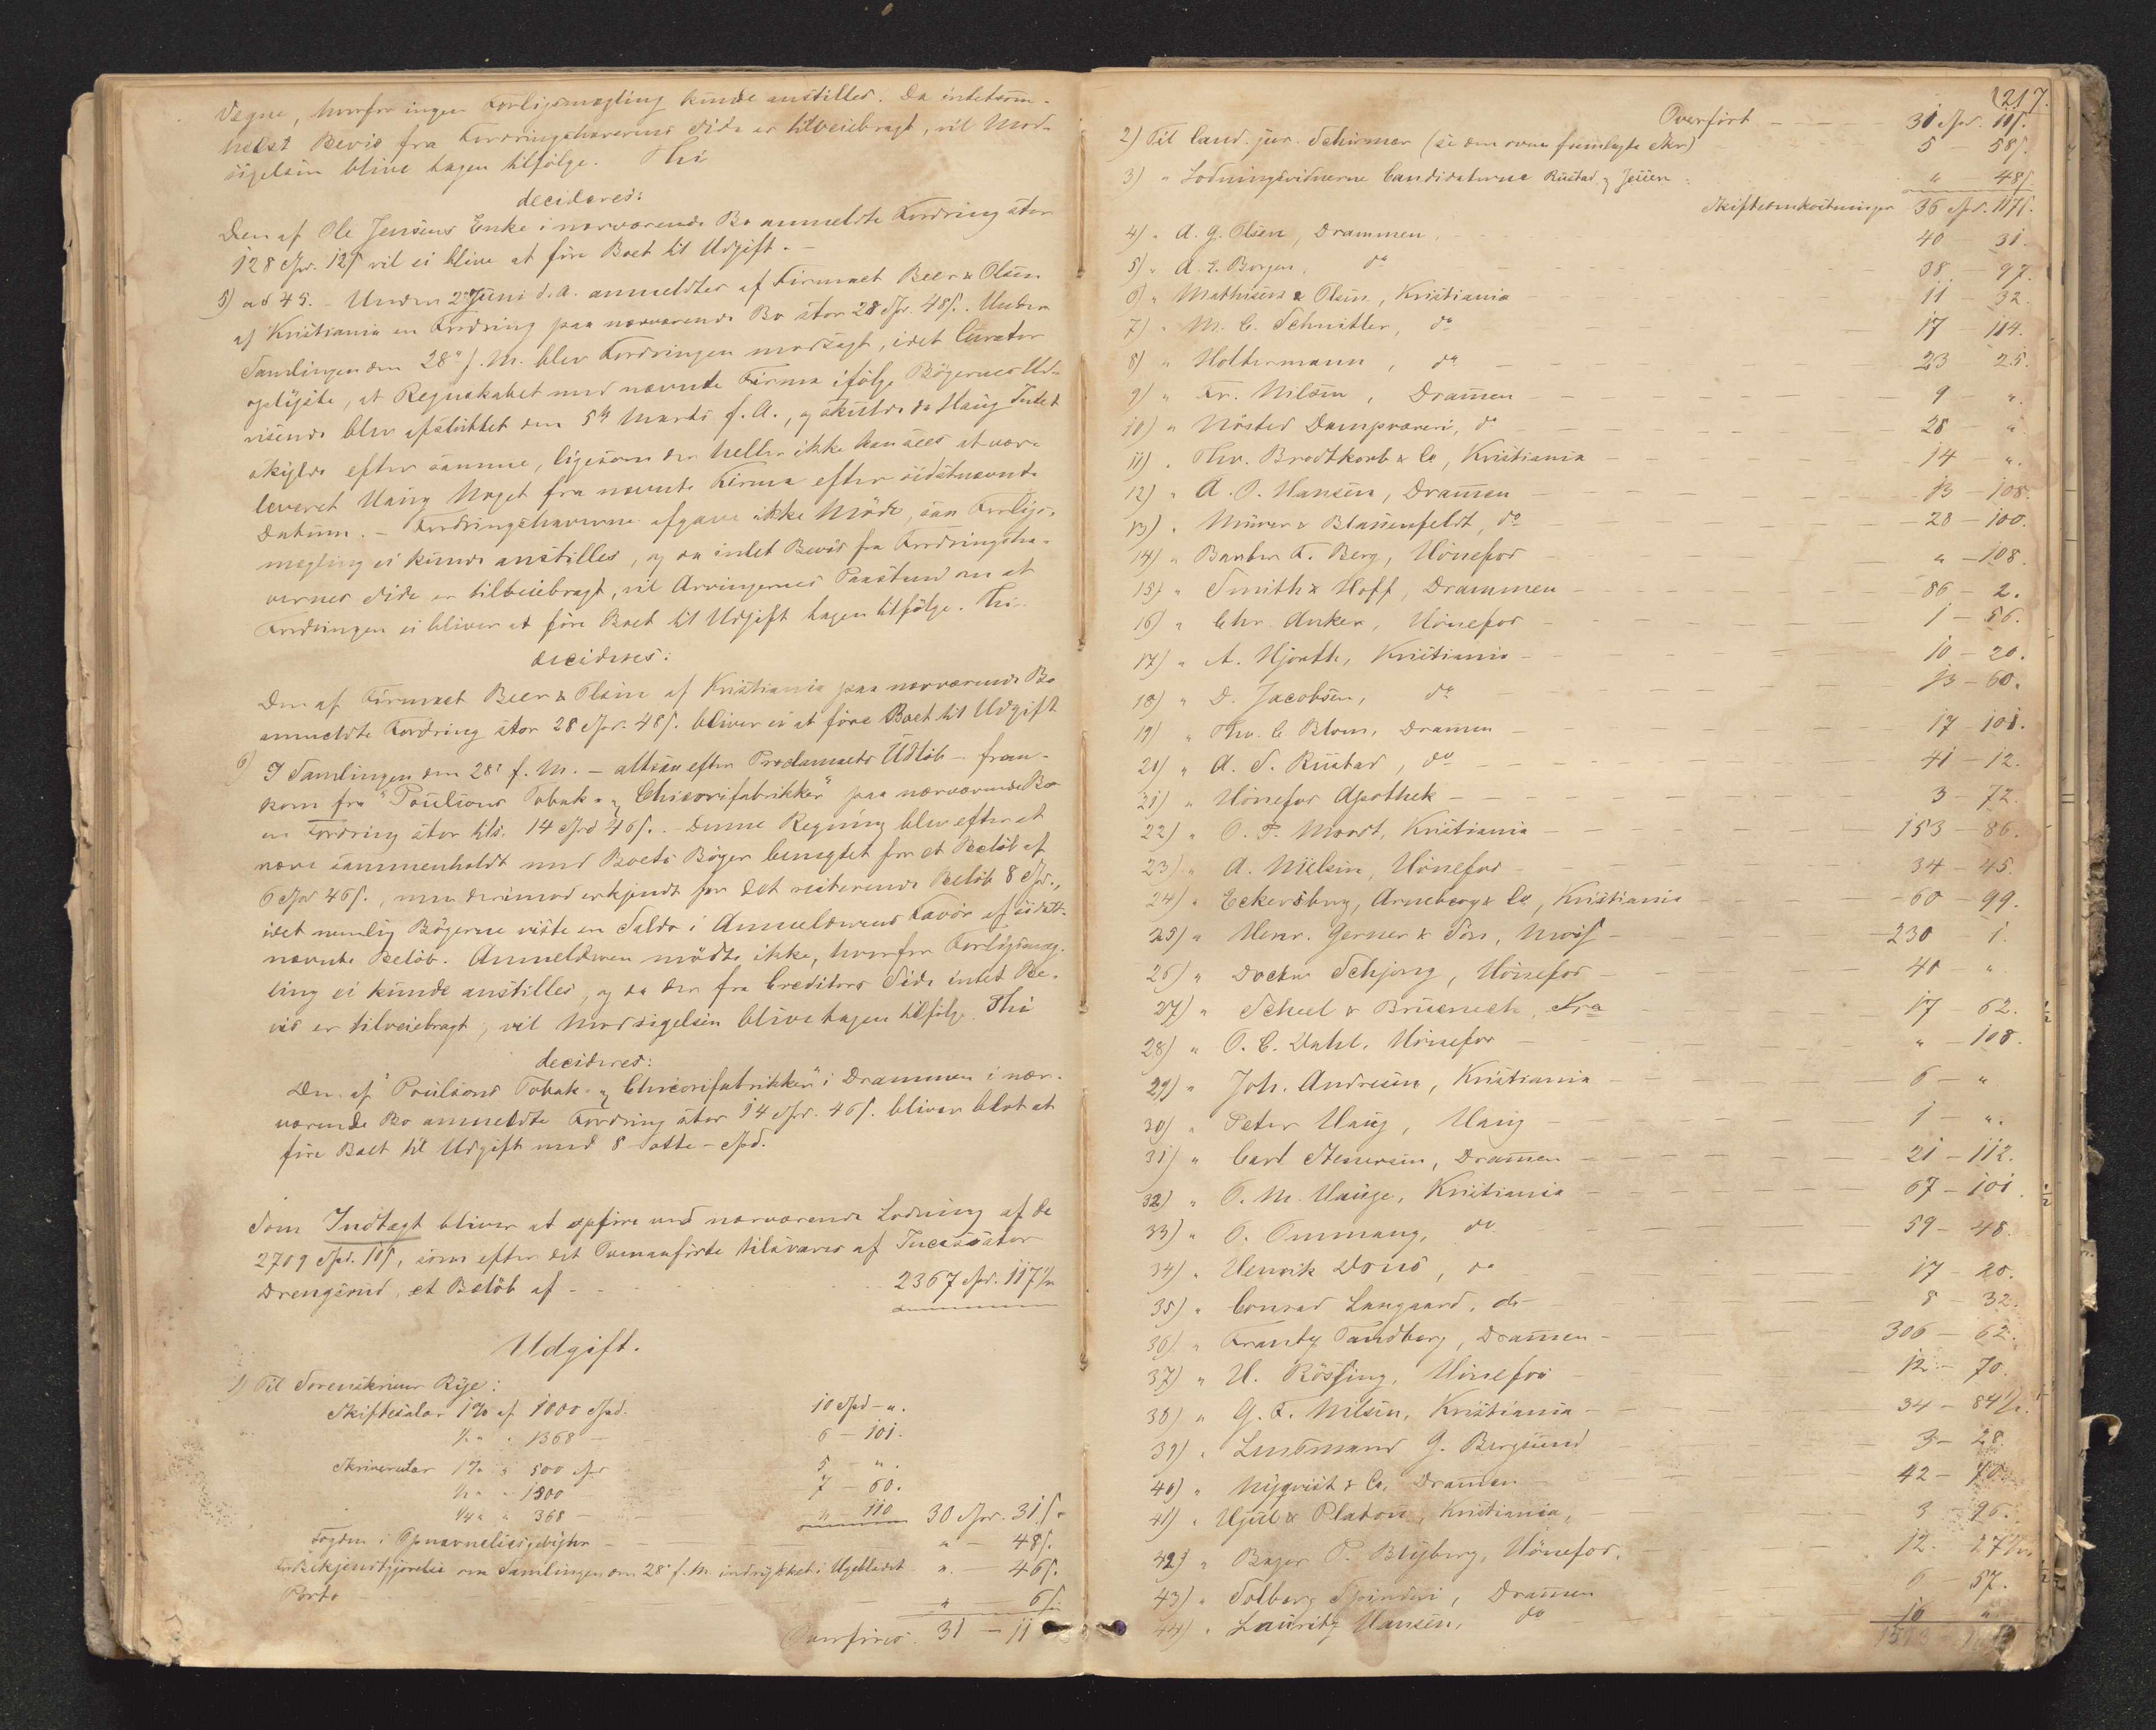 Vegne, hvorfor ingen Forligsmægling kunde anstilles. Da intetsom-
helst Bevis fra Fordringshaverens Side er tilveiebragt, vil Mod-
sigelsen blive tagen tilfølge. Thi
decideres:
Den af Ole Jensens Enke i nærværende Bo anmeldte Fordring stor
128 Spd. 12 ß vil ei blive at føre Boet til Udgift. –
5) ad 45. – Under 2den Juni d. A. anmeldtes af Firmaet Beer & Olsen
af Kristiania en Fordring paa nærværende Bo stor 28 Spd. 48 ß. Under
Samlingen den 28de f. M. blev Fordringen modsagt, idet Curator
oplyste, at Regnskabet med nævnte Firma ifølge Bøgernes Ud-
visende blev afsluttet den 5te Marts f. A., og skulde da Haug Intet
skylde efter samme, ligesom der heller ikke kan sees at være
leveret Haug Noget fra nævnte Firma efter sidstnævnte
Datum. – Fordringshaverne afgave ikke Møde, saa Forligs-
mægling ei kunde anstilles, og da intet Bevis fra Fordringsha-
vernes Side er tilveiebragt, vil Arvingernes Paastand om at
Fordringen ei bliver at føre Boet til Udgift tagen tilfølge. Thi
decideres:
Den af Firmaet Beer & Olsen af Kristiania paa nærværende Bo
anmeldte Fordring stor 28 Spd. 48 ß. bliver ei at føre Boet til Udgift
6) I Samlingen den 28de f. M. – altsaa efter Proclamaets Udløb – frem-
kom fra "Poulsons Tobak- og Chicorifabrikker" paa nærværende Bo
en Fordring stor tils. 14 Spd 46 ß. – Denne Regning blev efter at
være sammenholdt med Boets Bøger benegtet for et Beløb af
6 Spd 46 ß., men derimod erkjendt for det resterende Beløb 8 Spd.,
idet nemlig Bøgerne viste en Saldo i Anmelderens Favør af sidst-
nævnte Beløb. Anmelderen mødte ikke, hvorfor Forligsmæg-
ling ei kunde anstilles, og da der fra Creditors Side intet Be-
vis er tilveiebragt, vil Modsigelsen blive tagen tilfølge. Thi
decideres:
Den af "Poulsons Tobak- og Chicorifabrikker" i Drammen i nær-
værende Bo anmeldte Fordring stor 14 Spd. 46 ß. bliver blot at
føre Boet til Udgift med 8 – otte – Spd.
Som Indtægt bliver at opføre ved nærværende Lodning af de
2709 Spd. 10 ß, som efter det Ovenanførte tilsvares af Incassator
Drengsrud, et Beløb af – 2367 Spd. 117 ½
Udgift.
1) Til Sorenskriver Rye:
Skiftesalær 1 % af 1000 Spd. 10 Spd – ".
½ " " 1368 – 6 – 101.
Skriversalær 1 % " 500 Spd 5 – ".
½ " " 1500 7 – 60.
¼ " " 368 – " 110 30 Spd. 31 ß.
" – 48 ß.
Bekjendtgjørelse om Samlingen den 28de f. M. indrykket i Ugebladet " – 46 ß.
Porto " – 6 ß.
Overføres 31 – 11
217.
Overført – 31 Spd. 11 ß.
2) Til Cand. jur. Schirmer (se den oven fremlagte Skr) 5 – 58 ß.
3) " Lodningsvidnerne Candidaterne Rustad og Jensen " 48 ß.
Skifteomkostninger 36 Spd. 117 ß.
4) " A. G. Olsen, Drammen, 40 – 31.
5) " A. E. Borgen, do 38 – 97.
6) " Mathisen & Olsen, Kristiania – 11 – 32.
7) " M. C. Schnitler, do 17 – 114.
8) " Holtermann, do 23 – 25.
9) " Fr. Nilsen, Drammen – 9 – ".
10) " Nøsted Dampvæveri, do 28 – ".
11) " Thv. Brodtkorb & Co, Kristiania – 14 – ".
12) " A. O. Hansen, Drammen – 13 – 108.
13) " Münver & Blauenfeldt, do 28 – 100.
14) " Bandter F. Berg, Hønefos – " – 108.
15) " Smith & Hoff, Drammen – 86 – 2.
16) " Chr. Anker, Hønefos – 1 – 56.
17) " A. Hjorth, Kristiania – 10 – 20.
18) " D. Jacobsen, do 13 – 60.
19) " Thv. C. Blom, Drammen – 17 – 101.
20) " A. S. Rustad, do 41 – 12.
21) " Hønefos Apothek – 3 – 72.
22) " O. P. Moordt, Kristiania – 153 – 86.
23) " A. Nielsen, Hønefos – 34 – 45.
24) " Eckersberg, Arneberg & Co, Kristiania – 60 – 99.
25) " Henr. Gerner & Søn, Moss – 230 – 1.
26) " Doctor Schjong, Hønefos – 40 "
27) " Scheel & Bruenech, Kra 17 – 62. ½
28) " O. C. Dahl, Hønefos – " – 108.
29) " Joh. Andresen, Kristiania – 6 – "
30) " Peter Haug, Haug – 1 – ".
31) " Carl Stenersen, Drammen – 21 – 112.
32) " O. M. Hauge, Kristiania – 67 – 101. ½
33) " O. Ommang, do 59 – 48.
34) " Henrik Dons, do 17 – 20.
35) " Conrad Langaard, do – 8 – 32.
36) " Frantz Tandberg, Drammen – 306 – 62.
37) " H. Røssing, Hønefos 12 – 70.
38) " G. F. Nilsen, Kristiania – 34 – 84 ½.
39) " Lensmand G. Bergsund 3 – 28.
40) " Nyqvist & Co, Drammen – 42 – 70.
41) " Hjul & Platou, Kristiania, – 3 – 96.
42) " Bager P. Blyberg, Hønefos. 12 – 27 ½
43) " Solberg Spinderi, Drammen 6 – 57. ½
44) " Lauritz Hansen, do 10 "